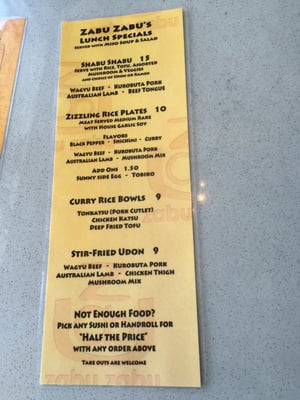 Zabu Zabu's
Lunch Specials
Served with Miso Soup & Salad
Shabu Shabu 15
Serve with Rice, Tofu, Assorted
Mushroom & Veggies
and Choice of Udon or Ramen
Wagyu Beef - Kurobuta Pork
Australian Lamb - Beef Tongue
Zizzling Rice Plates 10
Meat Served Medium Rare
with House Garlic Soy
Flavors
Black Pepper - Shichimi - Curry
Wagyu Beef - Kurobuta Pork
Australian Lamb - Mushroom Mix
Add Ons 1.50
Sunny Side Egg - Tobiko
Curry Rice Bowls 9
Tonkatsu (Pork Cutlet)
Chicken Katsu
Deep Fried Tofu
Stir-Fried Udon 9
Wagyu Beef - Kurobuta Pork
Australian Lamb - Chicken Thigh
Mushroom Mix
Not Enough Food?
Pick any Sushi or Handroll for
"Half the Price"
with any order above
Take outs are welcome
zabu zabu